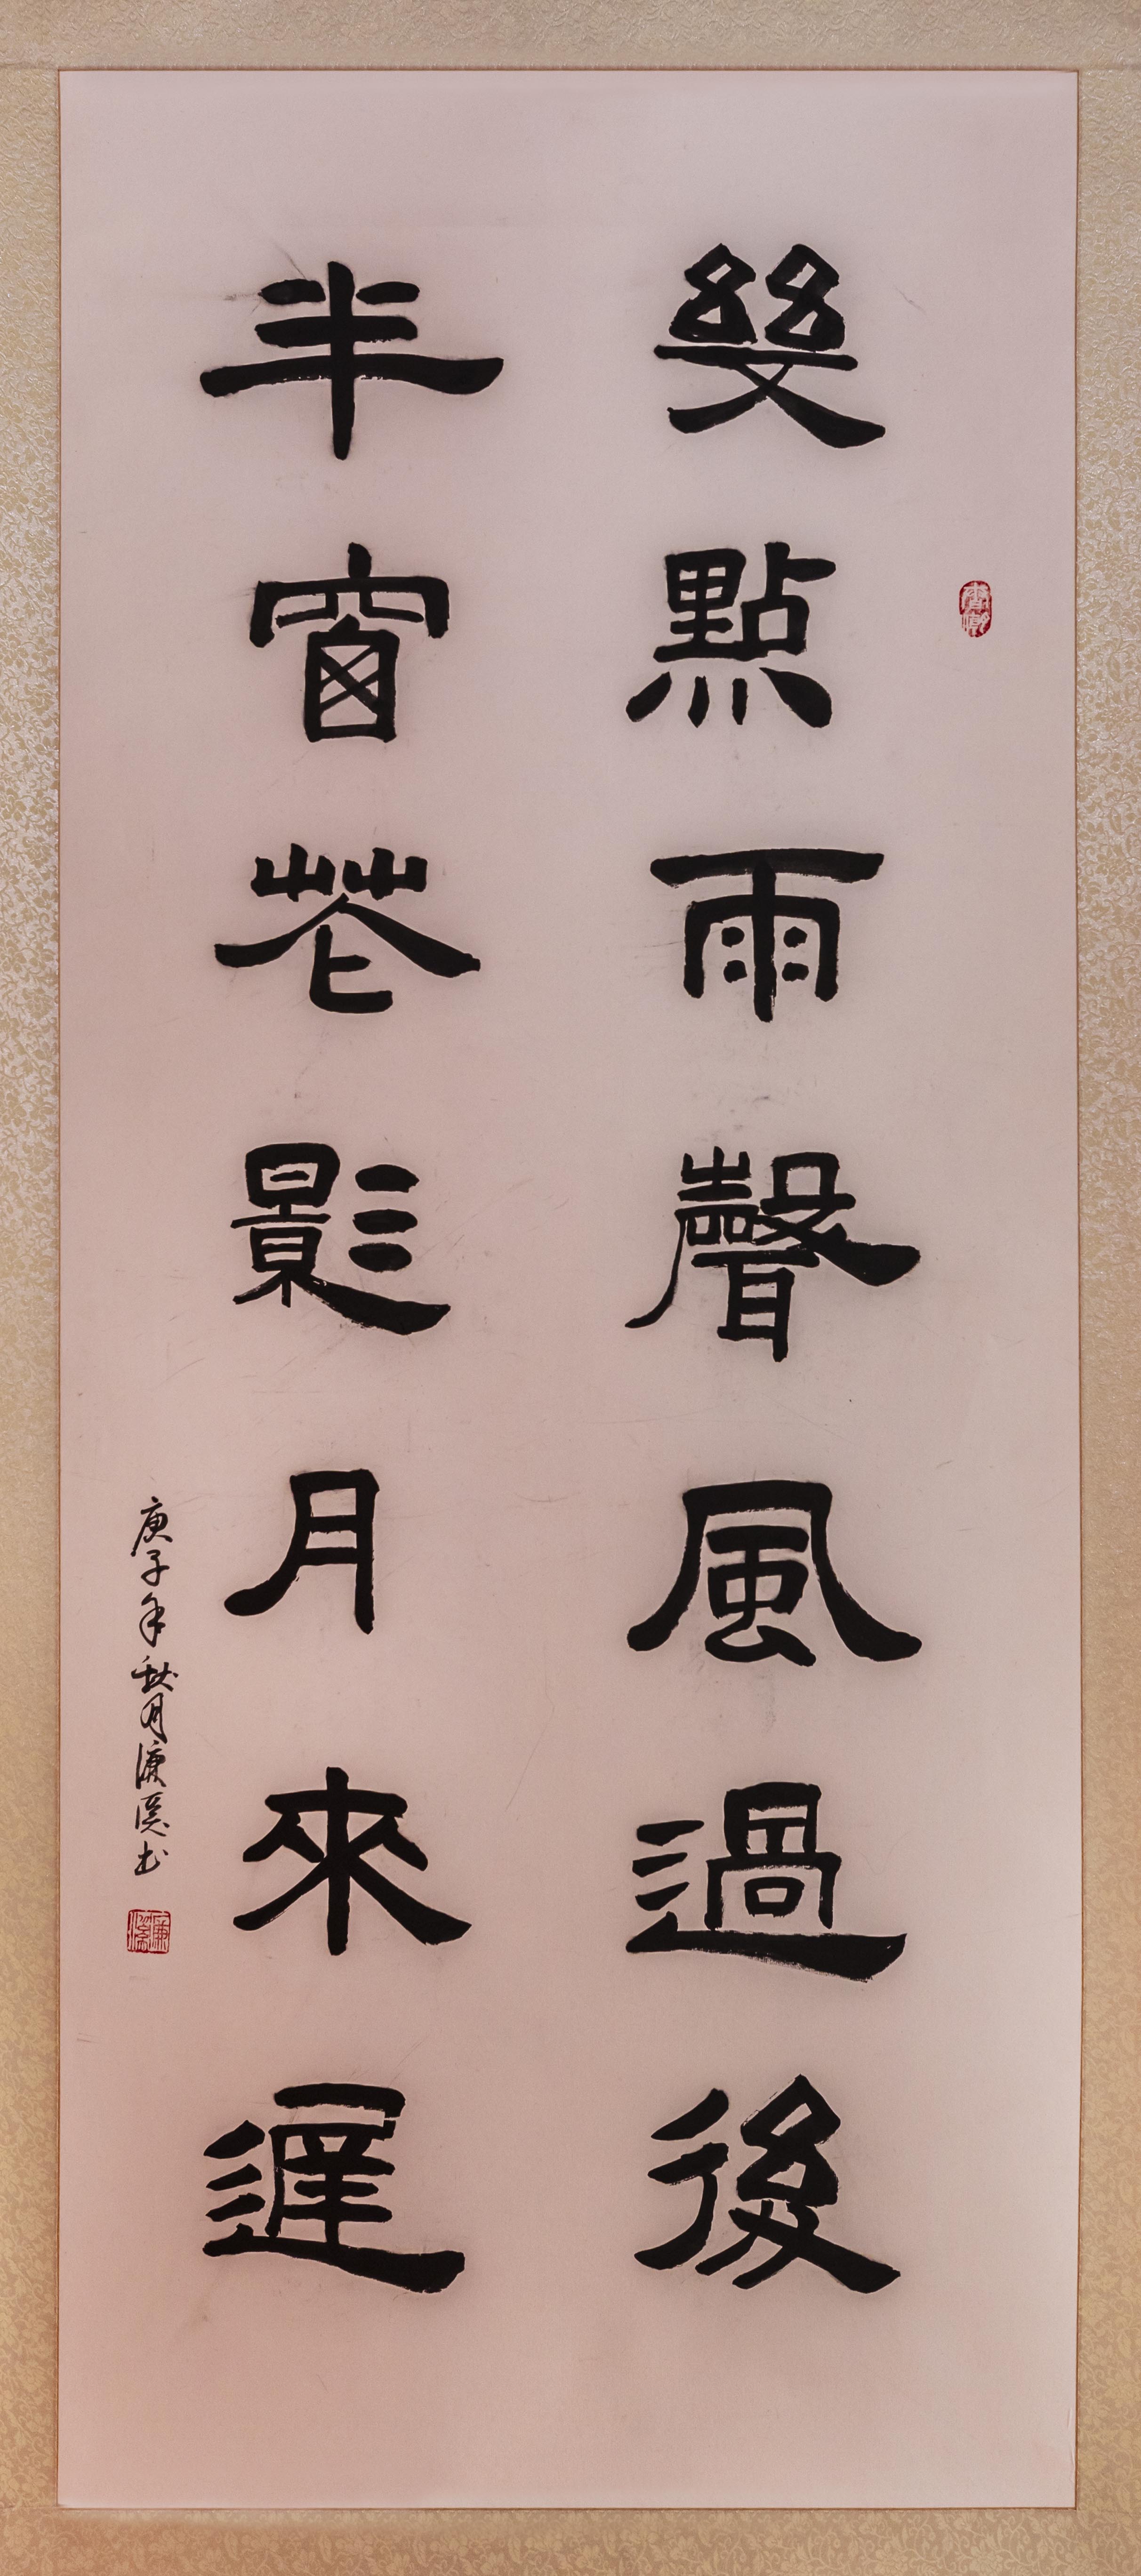 幾點雨聲風過後
半窗花影月來遲
庚子年秋月濂溪書